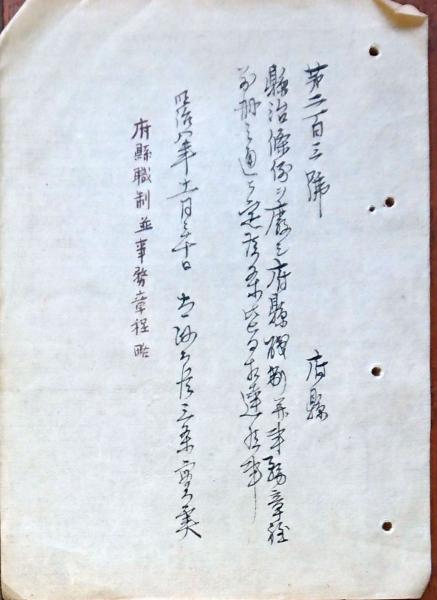 第二百三號
府縣
縣治條例ヲ廢シ府縣職制并事務章程
別冊之通ヲ定候条此旨相達候事
明治八年十一月三十日 太政大臣三条實美
府縣職制並事務章程略